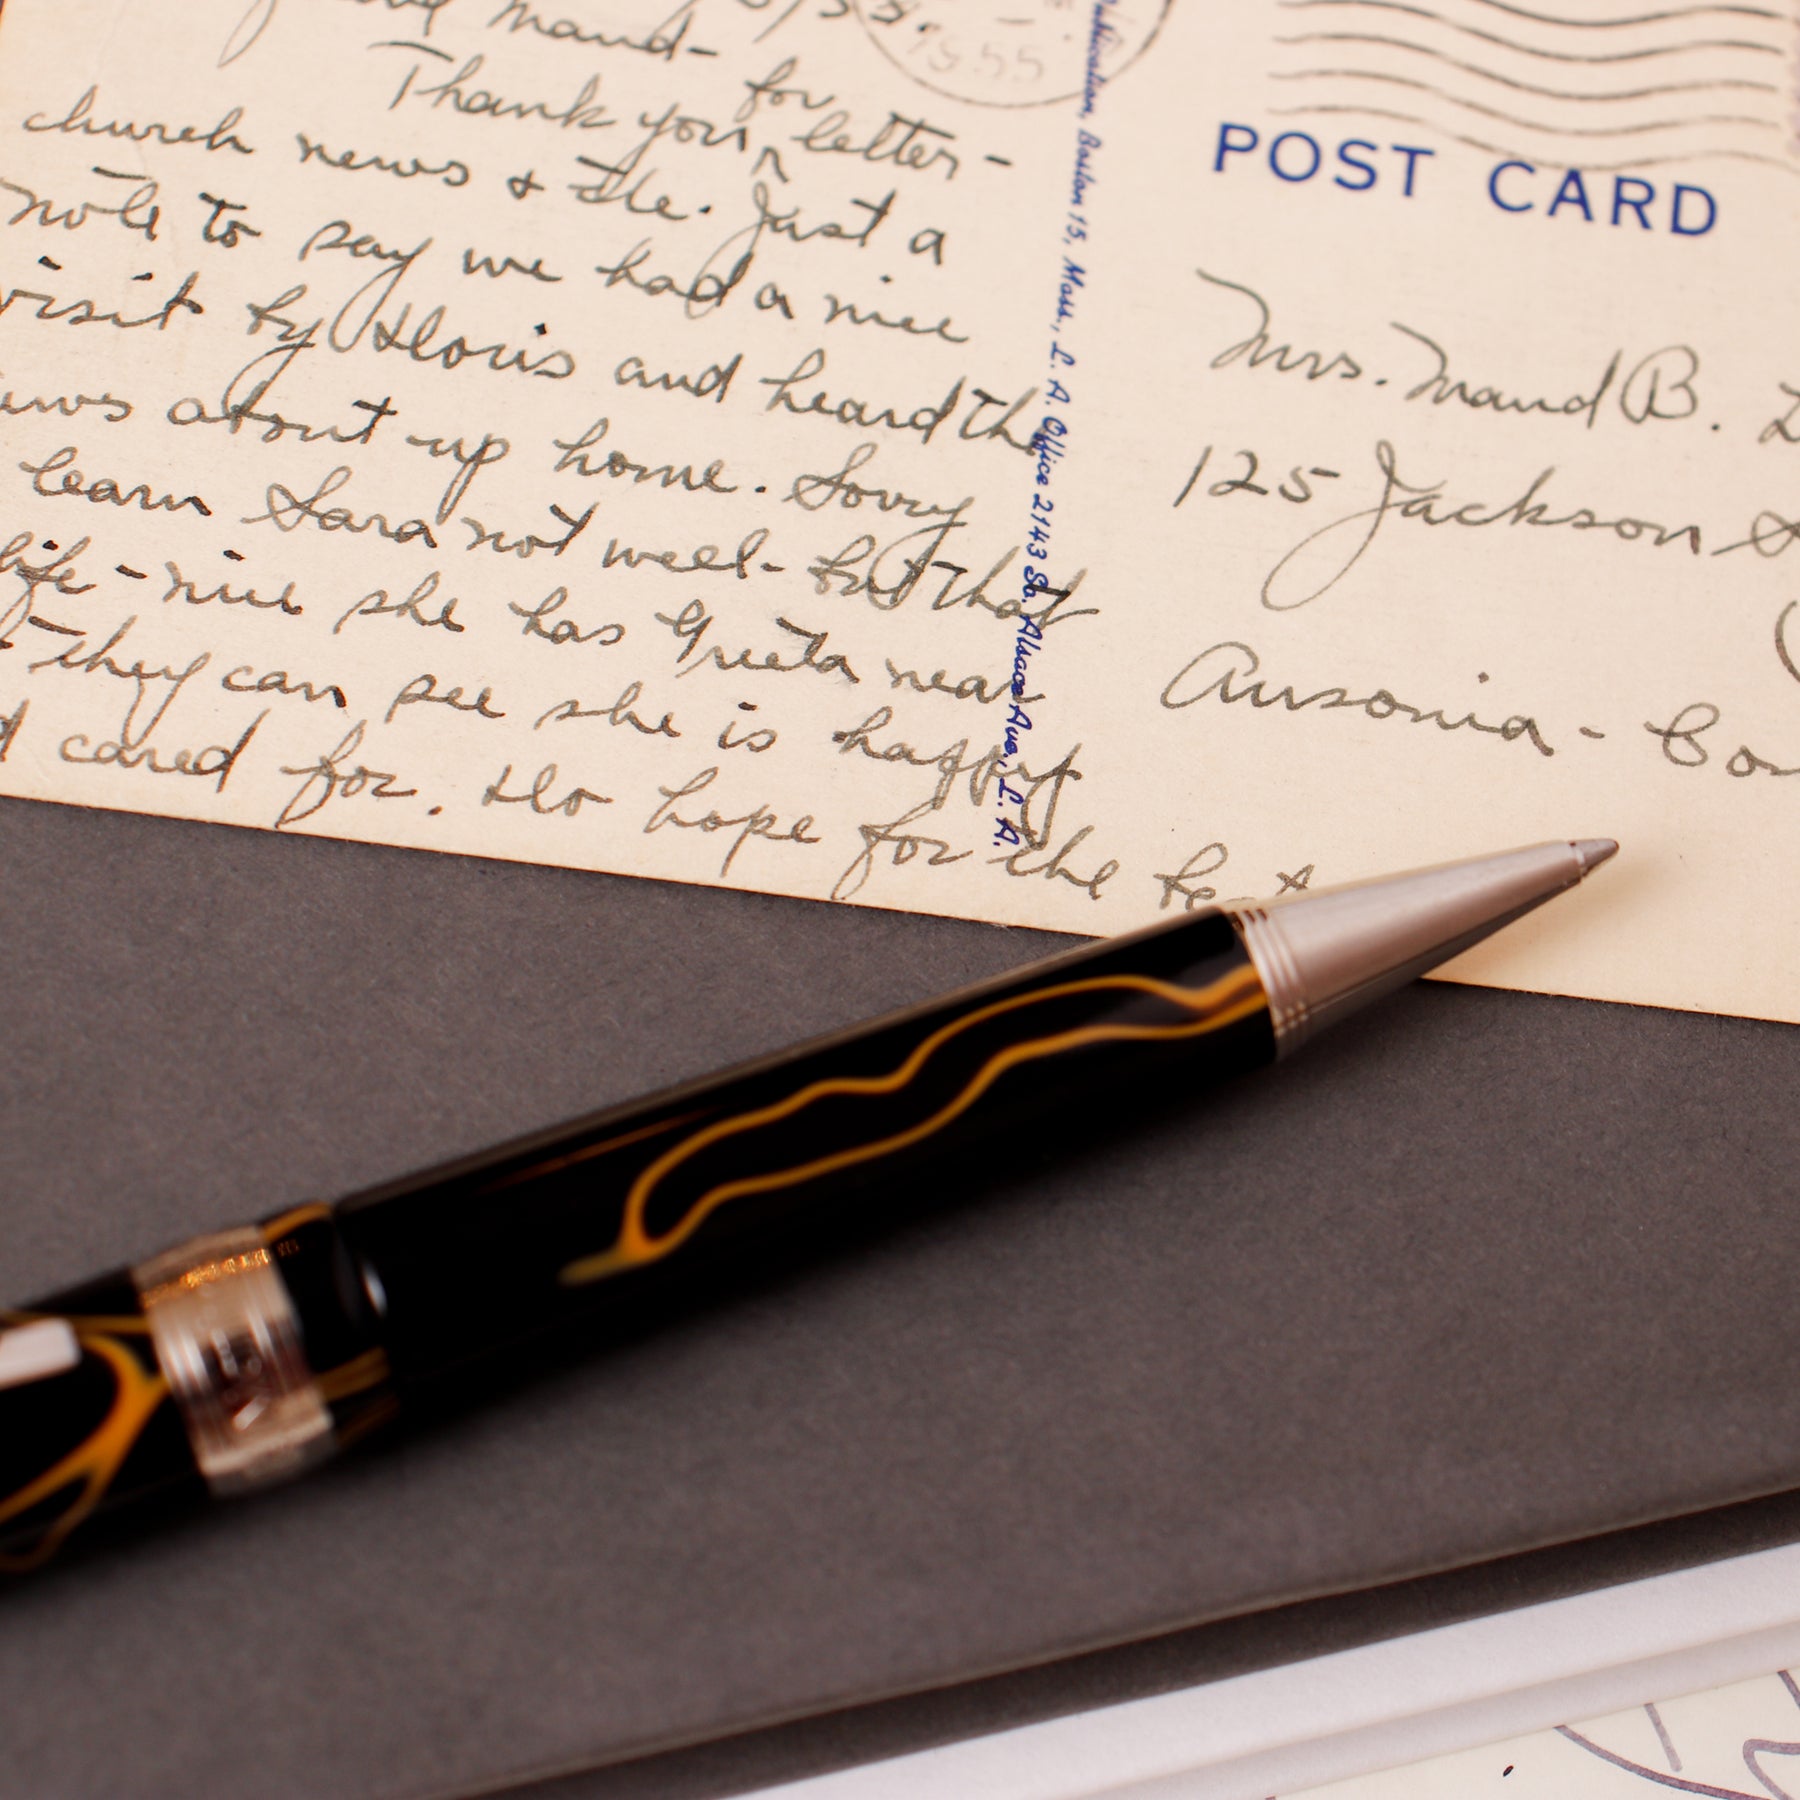 Maud-
1955
Thank you for letter-
church news & the. Just a
note to say we had a nice
visit by Doris and heard the
news about up home. Sorry
learn Sara not well- but that
life - nice she has Greeta near
They can see she is happy
cared for. Do hope for the best
Publication, Boston 15, Mass., L. A. Office 2143 So. Alsace Ave., L. A.
POST CARD
Mrs. Maud B.
125 Jackson
Ansonia -